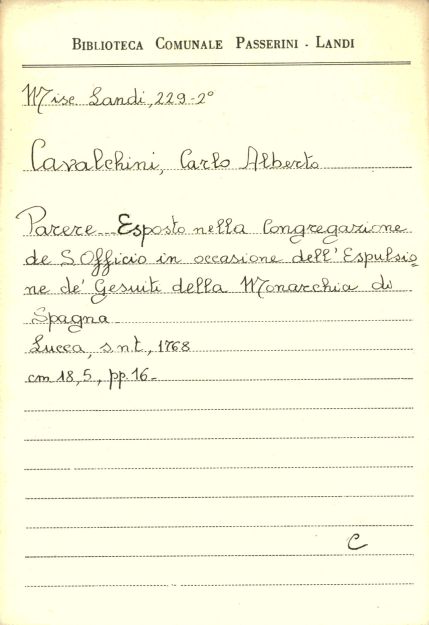 BIBLIOTECA COMUNALE PASSERINI - LANDI
Misc Landi, 229-2°
Cavalchini, Carlo Alberto
Parere Esposto nella Congregazione
de S Officio in occasione dell'Espulsio=
ne de' Gesuiti della Monarchia di
Spagna
Lucca, s.n.t., 1768
cm 18,5, pp. 16-
C